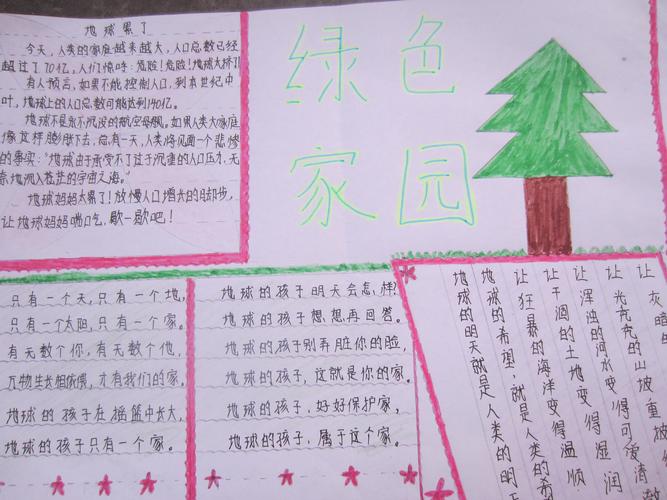 地球累了
今天,人类的家庭越来越大,人口总数已经
超过了70亿,人们惊呼:危险!危险!地球太挤了
有人预言,如果不能控制人口,到本世纪中
叶,地球上的人口总数可能达到140亿。
地球不是永不沉没的航空母舰。如果人类大家庭
像这样膨胀下去,总有一天,人类将见面一个悲惨
的事实:"地球由于承受不了过于沉重的人口压力,无
奈地沉入苍茫的宇宙之海。"
地球妈妈太累了!放慢人口增长的脚步,
让地球妈妈喘口气,歇一歇吧!
绿色
家园
只有一个天,只有一个地,
只有一个太阳,只有一个家。
有无数个你,有无数个他,
万物生长相依偎,才有我们的家。
地球的孩子在摇篮中长大,
地球的孩子只有一个家。
地球的孩子明天会怎样?
地球的孩子想想再回答。
地球的孩子别弄脏你的脸,
地球的孩子,这就是你的家。
地球的孩子,好好保护家,
地球的孩子,属于这个家。
让灰暗的
让光秃秃的山坡重披
让浑浊的河水变得可爱清澈
让干涸的土地变得湿润
让狂暴的海洋变得温顺
地球的希望,就是人类的希
地球的明天就是人类的明